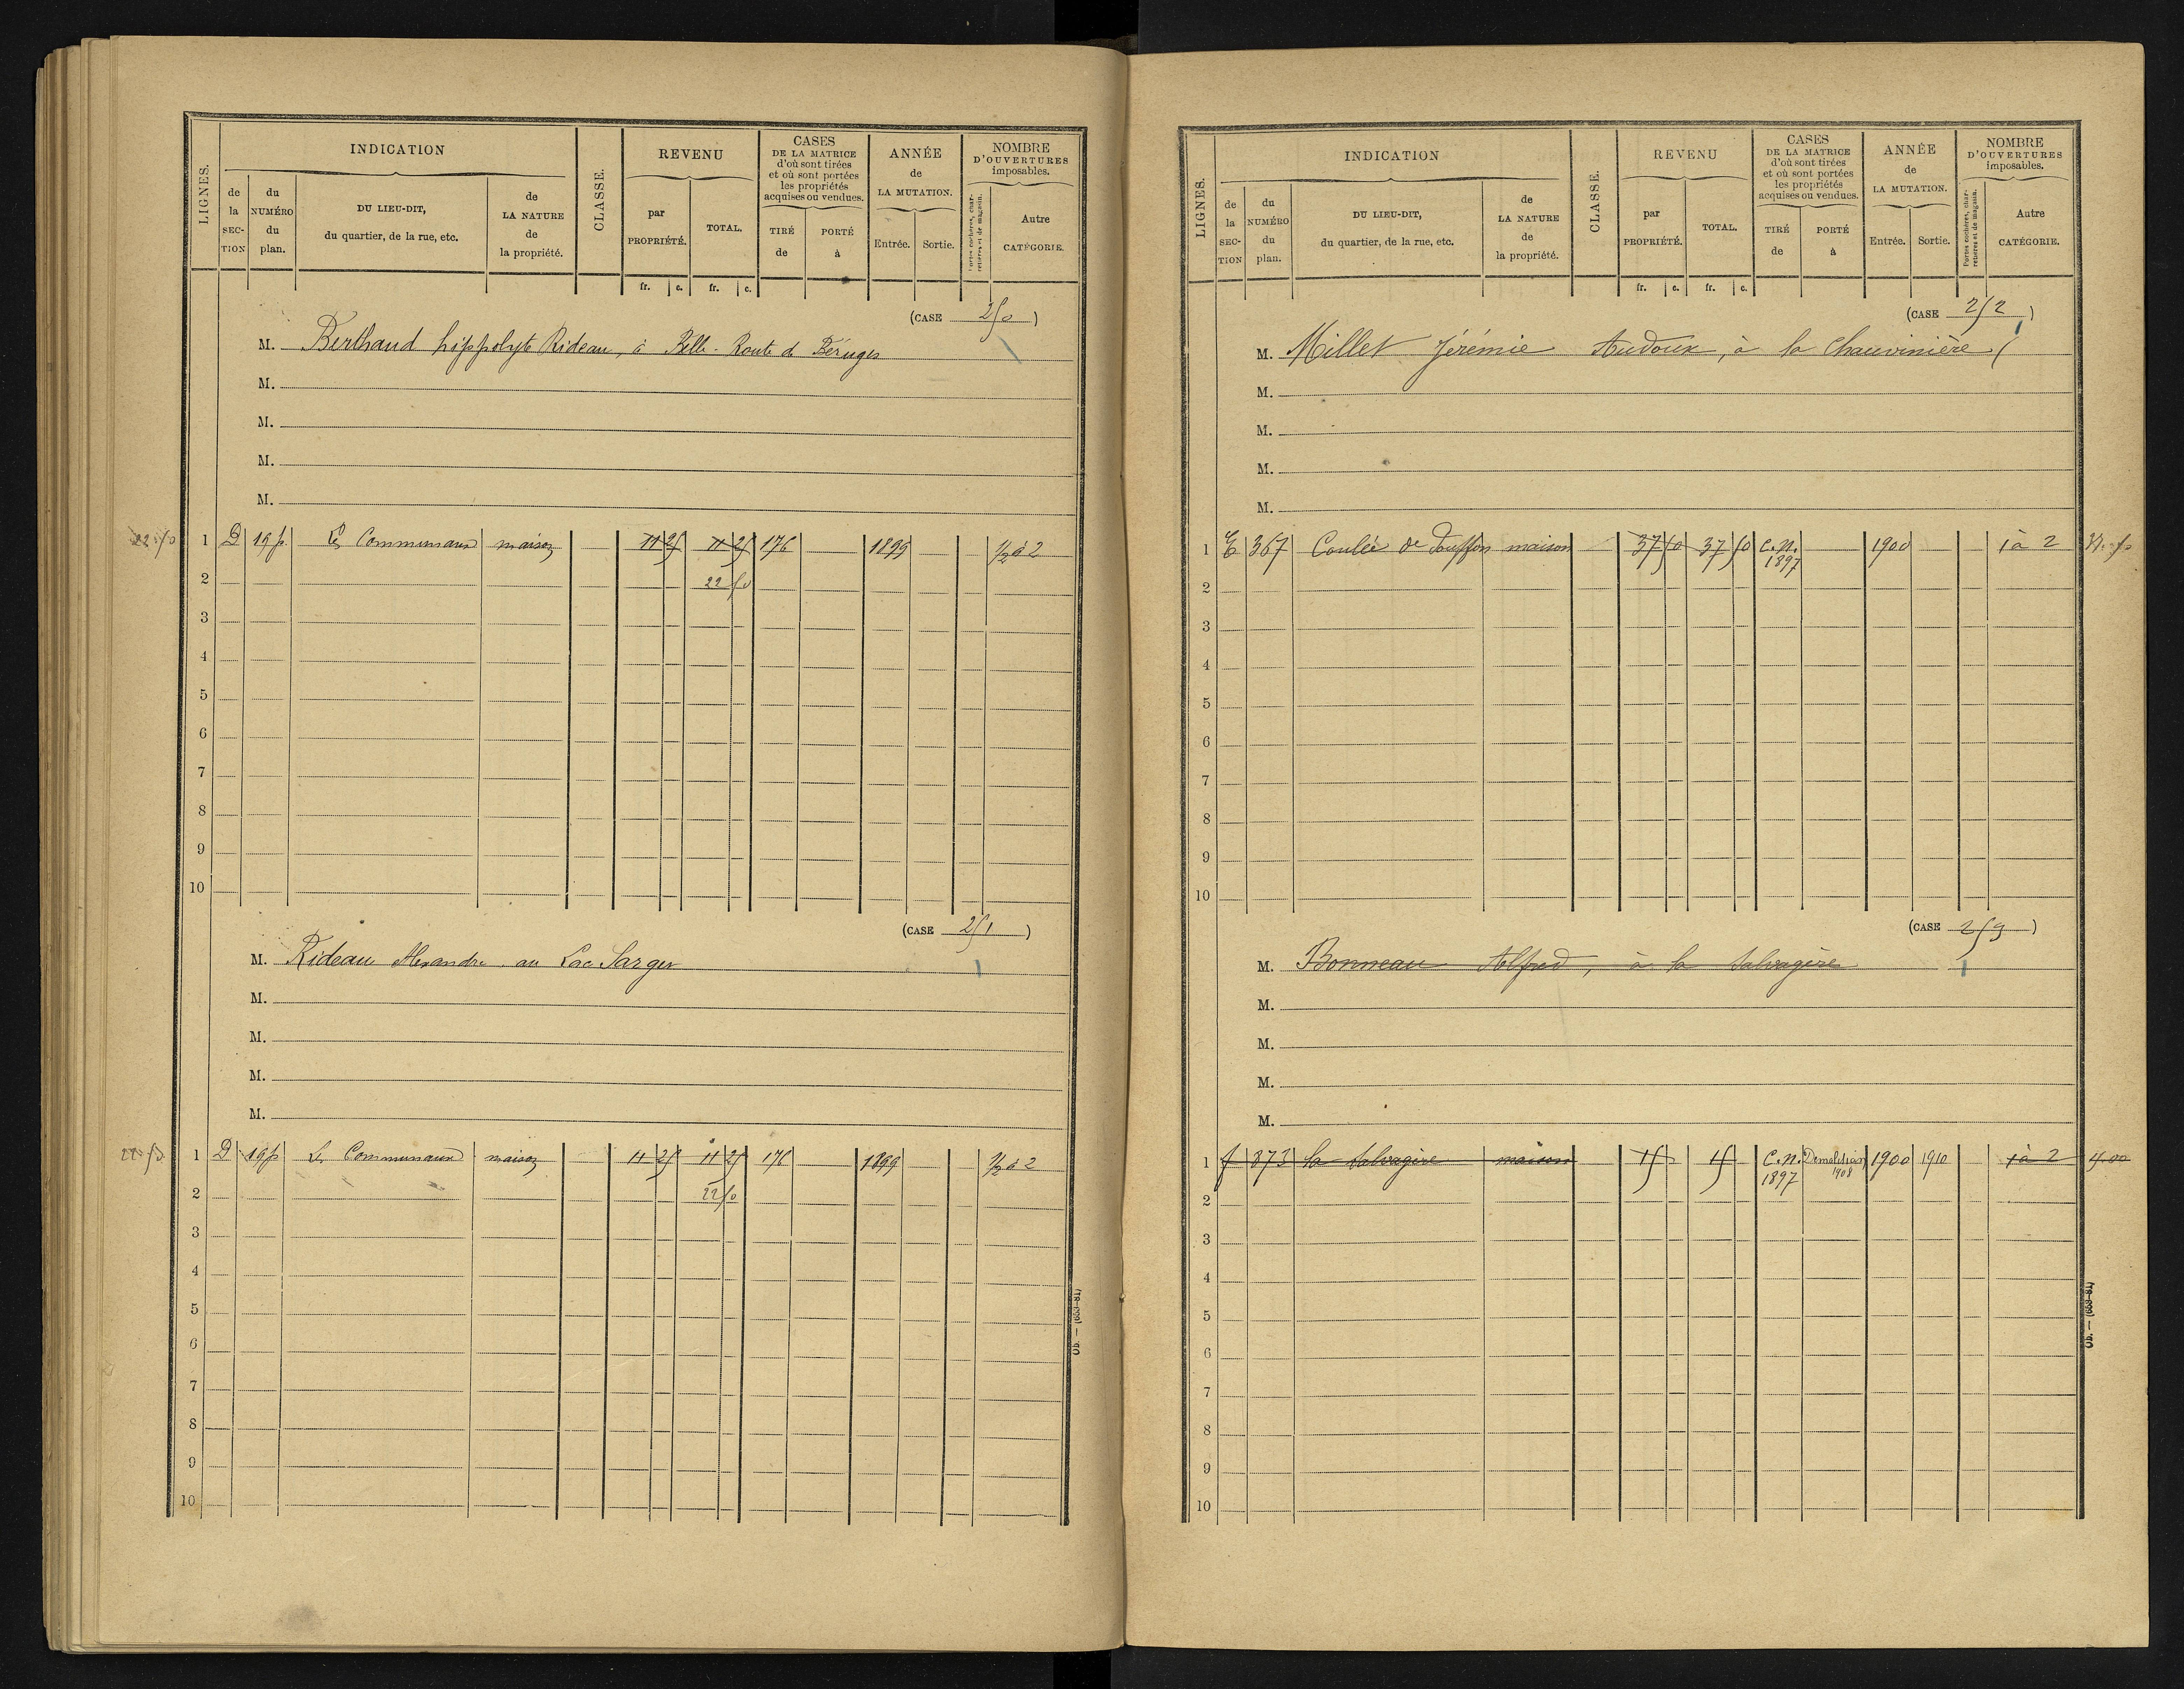 LIGNES.
INDICATION
de la SEC-TION
du NUMÉRO du plan.
DU LIEU-DIT, du quartier, de la rue, etc.
de LA NATURE de la propriété.
CLASSE.
REVENU
par PROPRIÉTÉ.
TOTAL.
fr. c. fr. c.
CASES DE LA MATRICE d'où sont tirées et où sont portées les propriétés acquises ou vendues.
TIRÉ de
PORTÉ à
ANNÉE de LA MUTATION.
Entrée. Sortie.
NOMBRE D'OUVERTURES imposables.
Portes cochères, charretières et de magasin.
Autre CATÉGORIE.
(CASE 250)
M. Berthaud hippolyte Rideau, à Belle-Route de Béruges
M.
M.
M.
M.
22.50 1 D 19p. Les Communaux maison 11 25 11 25 176 1899 1/2 à 2
2 22 50
3
4
5
6
7
8
9
10
(CASE 251)
M. Rideau Alexandre au Lac Sarger
M.
M.
M.
M.
22.50 1 D 19p Les Communaux maison 11 25 11 25 176 1899 1/2 à 2
2 22 50
3
4
5
6
7
8
9
10
Ob. — (659-81)
LIGNES.
INDICATION
de la SEC-TION
du NUMÉRO du plan.
DU LIEU-DIT, du quartier, de la rue, etc.
de LA NATURE de la propriété.
CLASSE.
REVENU
par PROPRIÉTÉ.
TOTAL.
fr. c. fr. c.
CASES DE LA MATRICE d'où sont tirées et où sont portées les propriétés acquises ou vendues.
TIRÉ de
PORTÉ à
ANNÉE de LA MUTATION.
Entrée. Sortie.
NOMBRE D'OUVERTURES imposables.
Portes cochères, charretières et de magasin.
Autre CATÉGORIE.
(CASE 252)
M. Millet Jérémie Audoux, à la Chauvinière
M.
M.
M.
M.
1 E 367 Coulée de Jouffon maison 37 50 37 50 C.N. 1897 1900 1 à 2
2
3
4
5
6
7
8
9
10
(CASE 253)
M. Bonneau Alfred, à la Salvagère
M.
M.
M.
M.
1 f 873 la Salvagère maison 15 15 C.N. 1897 Demolition 1908 1900 1910 1 à 2
2
3
4
5
6
7
8
9
10
Ob. — (659-81)